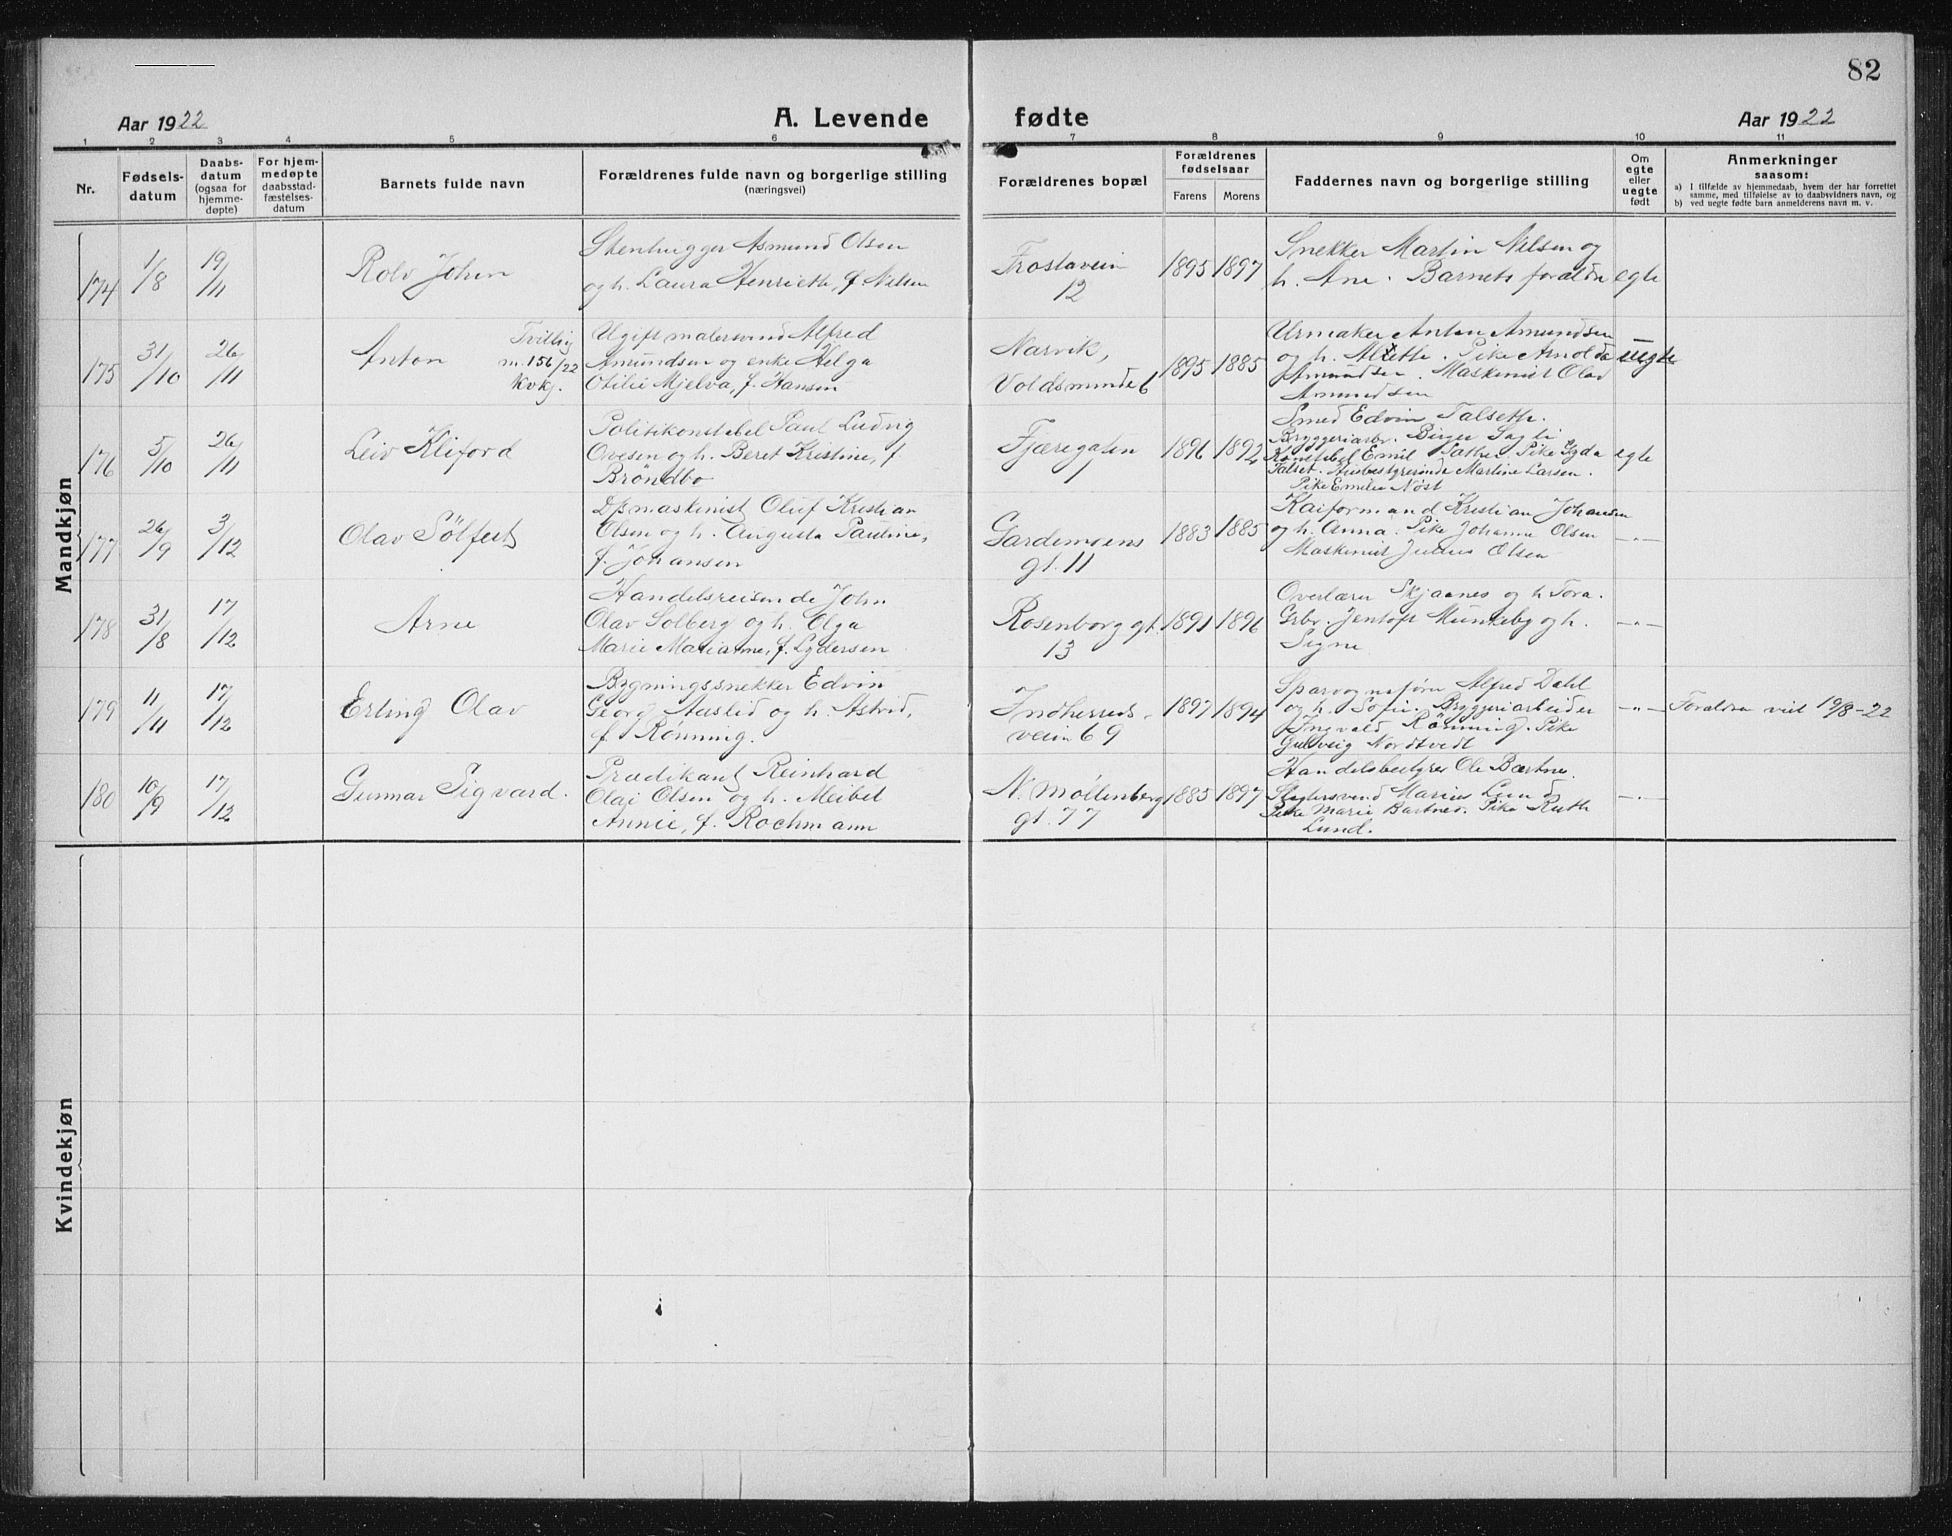 82
Aar 1922
A. Levende fødte
Aar 1922
1 2 3 4 5 6 7 8 9 10 11
Nr.
Fødsels-
datum
Daabs-
datum
(ogsaa for
hjemme-
døpte)
For hjem-
medøpte
daabsstad-
fæstelses-
datum
Barnets fulde navn
Forældrenes fulde navn og borgerlige stilling
(næringsvei)
Forældrenes bopæl
Forældrenes
fødselsaar
Farens Morens
Faddernes navn og borgerlige stilling
Om
egte
eller
uegte
født
Anmerkninger
saasom:
a) I tilfælde av hjemmedaab, hvem der har forrettet
samme, med tilføielse av to daabsvidners navn, og
b) ved uegte fødte barn anmelderens navn m. v.
Mandkjøn
174
1/8
19/11
Rolv Johan
Stenhugger Asmund Olsen
og h. Laura Henriette, f. Nilsen
Frostavein
12
1895 1897
Snekker Martin Nilsen og
h. Ane. Barnets forældre
egte
175
31/10
26/11
Anton
Tvilling
m. 156/22
kvkj.
Ugift malersvend Alfred
Amundsen og enke Helga
Otilie Mjelva, f. Hansen
Narvik,
Voldsminde 6
1895 1885
Urmaker Anton Amundsen
og h. Pike Arnolda
Amundsen. Maskinist Olav
Amundsen
uegte
176
5/10
26/11
Leiv Kliford
Politikonstabel Paul Ludvig
Ovesen og h. Beret Kristine, f.
Bröndbo
Fjæregaten
1896 1892
Smed Edvin Talseth.
Bryggeriarb. Birger Sagli
Konstabel Emil Sæther Pike Gyda
Talset. Husbestyrerinde Martine Larsen.
Pike Emilie Nöst
egte
177
26/9
3/12
Olav Sölfest
Dpsmaskinist Oluf Kristian
Olsen og h. Augusta Pauline,
f. Johansen
Gardemoens
gt. 11
1883 1885
Kaiformand Kristian Johansen
og h. Anna. Pike Johanne Olsen
Maskinist Julius Olsen
—„—
178
31/8
17/12
Arne
Handelsreisende John
Olav Solberg og h. Olga
Marie Marianne, f. Lydersen
Rosenborg gt.
13
1891 1896
Overlærer Skjaanes og h. Tora.
Grbr. Jentoft Munkeby og h.
Signe
—„—
179
11/11
17/12
Erling Olav
Bygningssnekker Edvin
Georg Auslid og h. Astrid,
f. Rönning.
Indherreds-
veien 69
1897 1894
Sparvognsförer Alfred Dahl
og h. Sofie. Bryggeriarbeider
Ingvald Rönning. Pike
Gudveig Nordtvedt
—„—
Foræld­re viet 19/8-22
180
10/9
17/12
Gunnar Sigvard.
Prædikant Reinhard
Olai Olsen og h. Meibel
Annie, f. Rochmann
N. Möllenberg
gt. 77
1885 1897
Handelsbestyrer Ole Bartnes.
Marius Lund
Pike Marie Bartnes. Pike Ruth
Lund.
—„—
Kvindekjøn